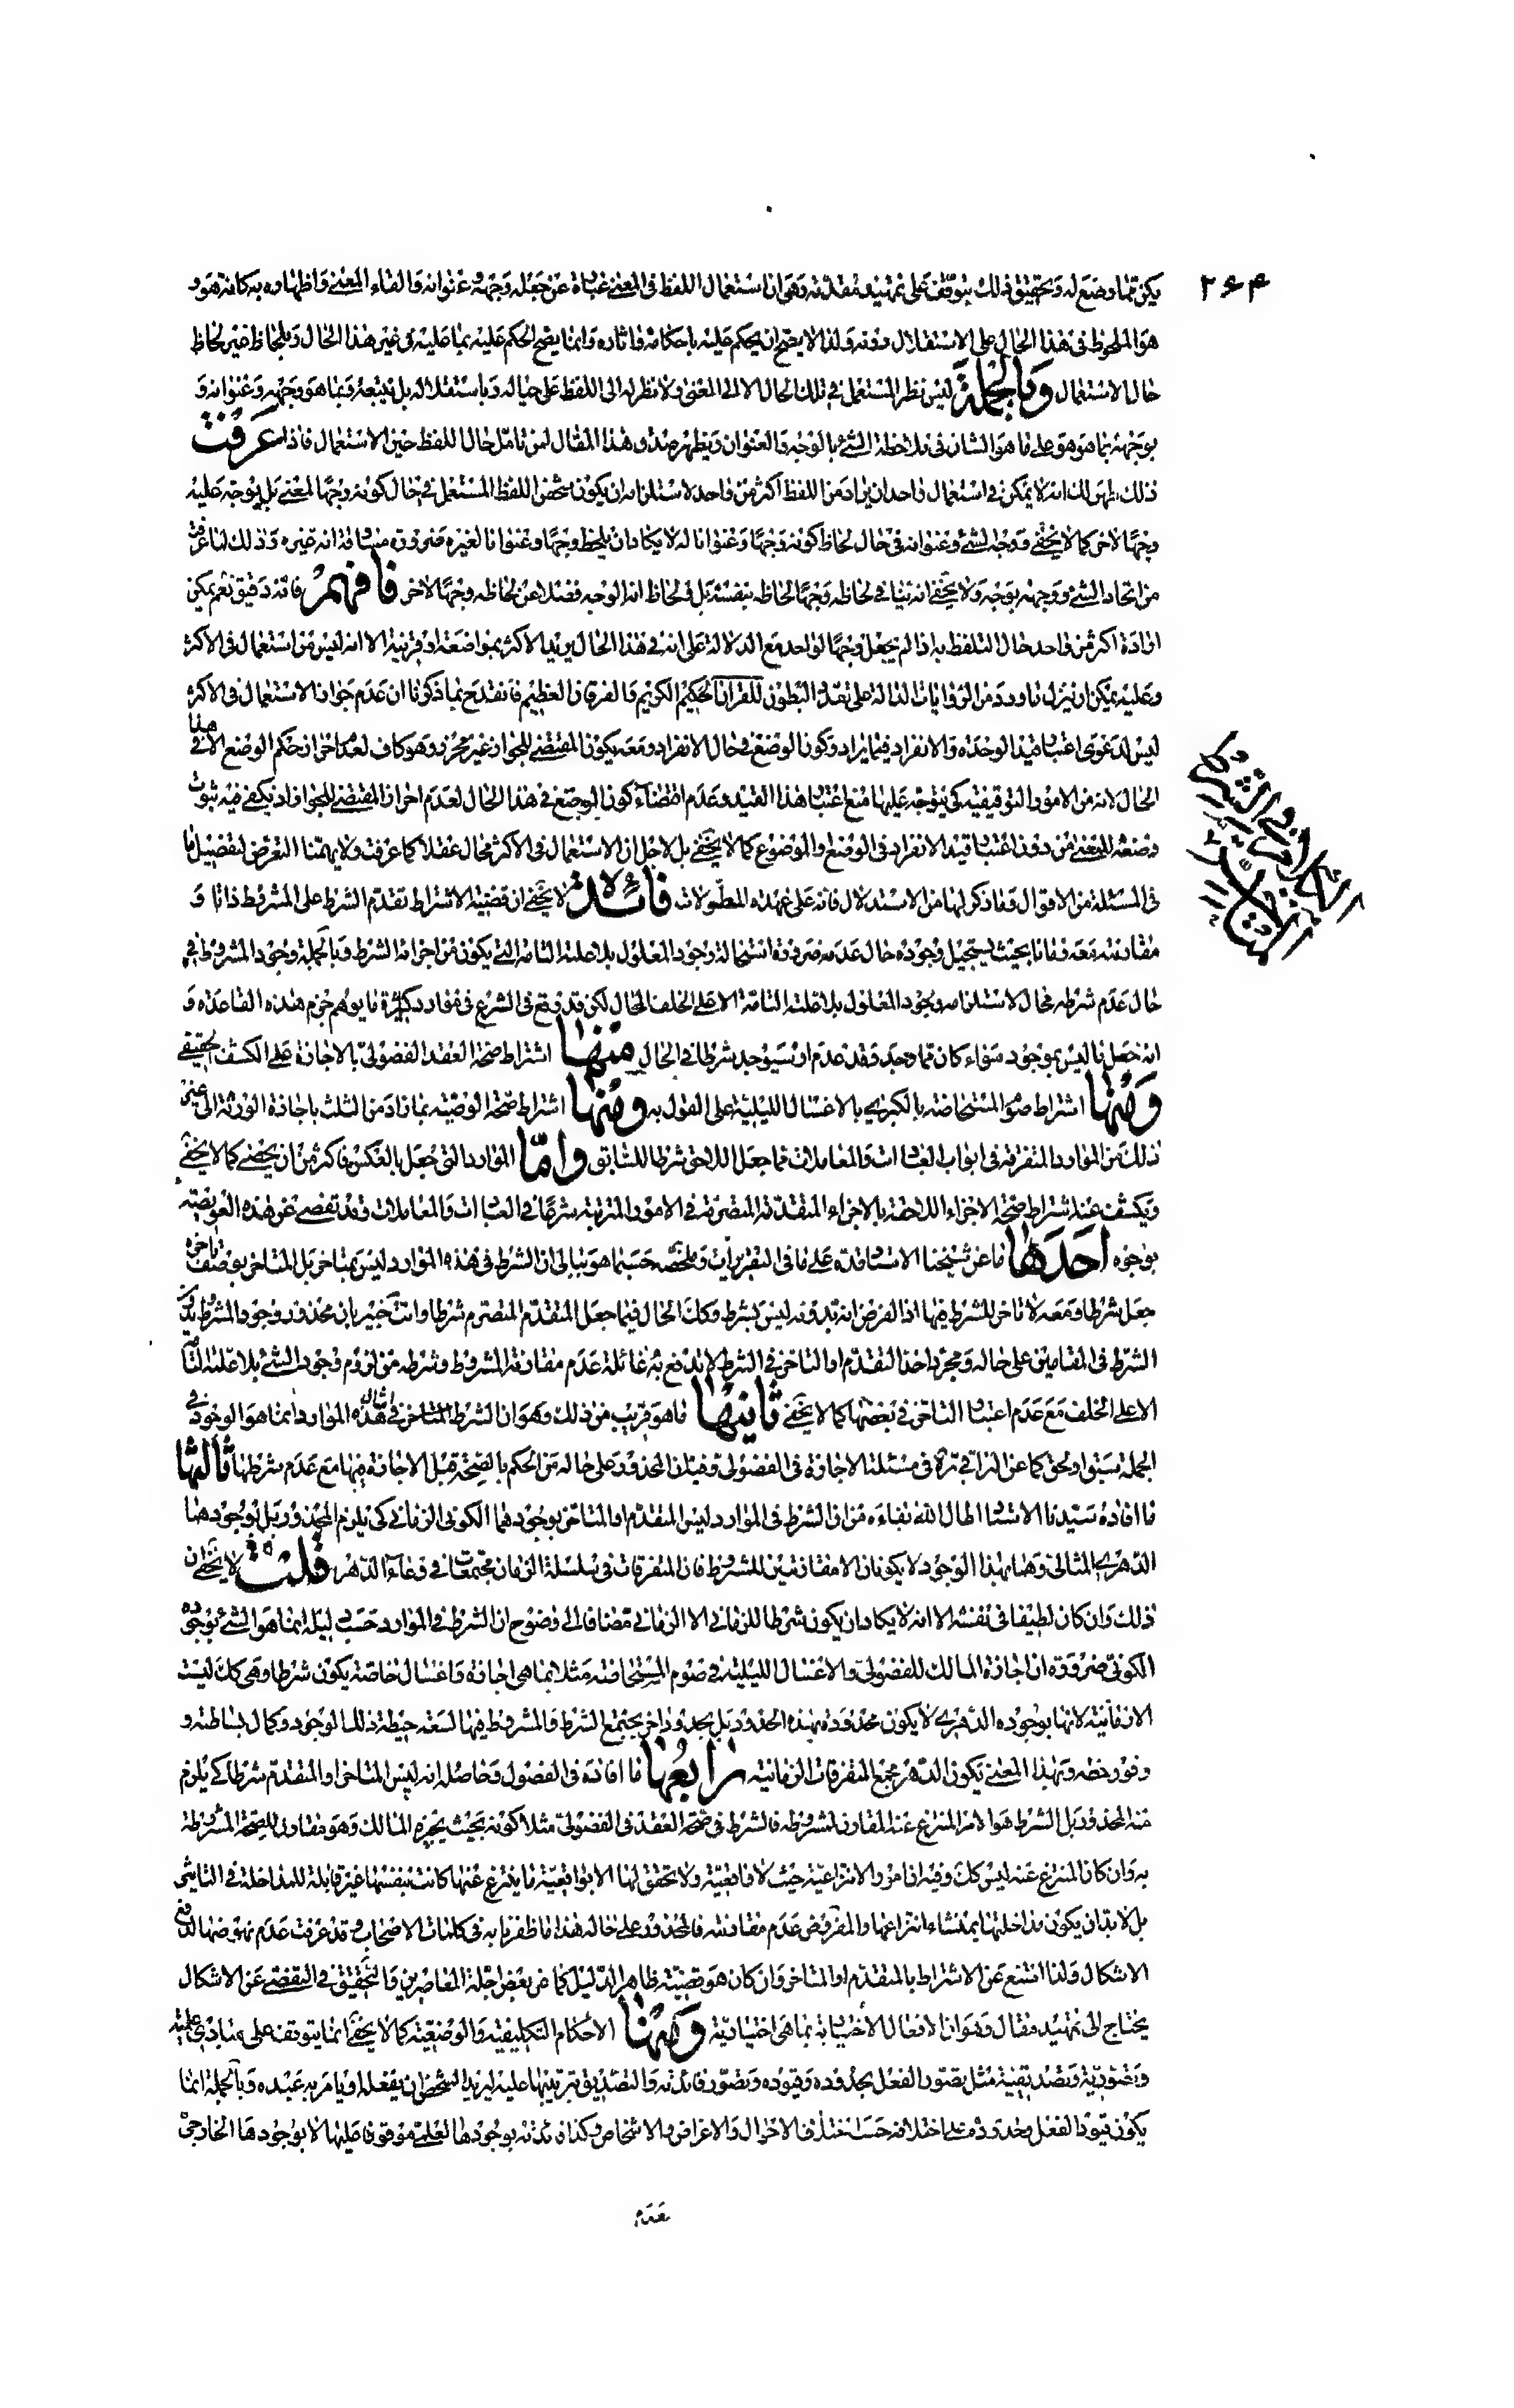 ۲۶۴
يكن مما وضع له وتحقيق ذلك يتوقف على تمهيد مقدمة وهى ان استعمال اللفظ فى المعنى عبارة عن جعله وجها وعنوانه والقاء المعنى واظهاره به كانه هو و
هو الملحوظ فى هذا الحال على الاستقلال دونه ولذا لا يصح ان يحكم عليه باحكامه واثاره وانما يصح الحكم عليه بما عليه فى غير هذا الحال وبلحاظ غير لحاظ
حال الاستعمال وبالجملة ليس نظر المستعمل فى تلك الحال الا الى المعنى ولا نظر له الى اللفظ على حياله وباستقلاله بل بتبعه وبما هو وجهه وعنوانه و
بوجهه بما هو هو على ما هو الشان فى ملاحظة الشئ بالوجه والعنوان ويظهر صدق هذا المقال لمن تامل حال اللفظ حين الاستعمال فاذا عرفت
ذلك ظهر لك انه لا يمكن فى استعمال واحد ان يراد من اللفظ اكثر من واحد لاستلزامه ان يكون شخص اللفظ المستعمل فى حال كونه وجها لمعنى بل يوجه عليه
وجها لاخر كما لا يخفى ووجه الشئ وعنوانه فى حال لحاظ كونه وجها وعنوانا له لا يكاد ان يلحظ وجها وعنوانا لغيره ضرورة مساوقة انه غيره وذلك لما عرفت
من اتحاد الشئ ووجهه بوجه ولا يخفى انه ينافى لحاظه وجها لحاظه بنفسه بل فى لحاظ انه الوجه فضلا عن لحاظه وجها لاخر فافهم فانه دقيق نعم يمكن
ارادة اكثر من واحد حال التلفظ به اذا لم يجعل وجها لواحد مع الدلالة على انه فى هذا الحال يريد الاكثر بمواضعة او قرينة الا انه ليس من استعمال فى الاكثر
وعليه يمكن ان ينزل ما ورد من الروايات الدالة على تعدد البطون للقران الحكيم الكريم والفرقان العظيم فانقدح بما ذكرنا ان عدم جواز الاستعمال فى الاكثر
ليس لدعوى اعتبار قيد الوحدة والانفراد فيما يراد وكون الوضع فى حال الانفراد ومعه يكون المقتضى للجواز غير محرز وهو كاف لعدم احراز حكم الوضع الا فى هذا
الحال لانه من الامور التوقيفية كى يتوجه عليها منع اعتبار هذا القيد وعدم اقتضاء كون الوضع فى هذا الحال لعدم احراز المقتضى للجواز اذ يكفى فيه ثبوت
وضعه للمعنى من دون اعتبار قيد الانفراد فى الوضع والموضوع كما لا يخفى بل لاجل ان الاستعمال فى الاكثر محال عقلا كما عرفت ولا يهمنا التعرض لتفصيل ما
فى المسئلة من الاقوال وما ذكر لها من الاستدلال فانه على عهدة المطولات فائدة لا يخفى ان قضية الاشتراط تقدم الشرط على المشروط ذاتا و
مقارنته معه زمانا بحيث يستحيل وجوده حال عدمه ضرورة استحالة وجود المعلول بلا علته التامة التى يكون من اجزائه الشرط وبالجملة وجود المشروط فى
حال عدم شرطه محال لاستلزامه وجود المعلول بلا علته التامة الا على الخلف المحال لكن قد وقع فى الشرع فى موارد كثيرة ما يوهم خرم هذه القاعدة و
انه جعل ما ليس بموجود سواء كان مما وجد وقد عدم او سيوجد شرطا فى الحال منها اشتراط صحة العقد الفضولى بالاجازة على الكشف الحقيقى
ومنها اشتراط صوم المستحاضة بالكبرى بالاغسال الليلية على القول به ومنها اشتراط صحة الوصية بما زاد من الثلث باجازة الورثة الى غير
ذلك من الموارد المتفرقة فى ابواب العبادات والمعاملات مما جعل اللاحق شرطا للسابق واما الموارد التى جعل بالعكس فاكثر من ان يحصى كما لا يخفى
ويكشف عنه اشتراط صحة الاجزاء اللاحقة بالاجزاء المتقدمة المتصرمة فى الامور المترتبة شرعا فى العبادات والمعاملات وقد تفصى عن هذه العويصة
بوجوه احدها ما عن شيخنا الاستاد قده على ما فى التقريرات وملخصه حسبما هو ببالى ان الشرط فى هذه الموارد ليس بمتاخر بل المتاخر بوصف تاخره
جعل شرطا ومعه لا تاخر للشرط فيها اذ الفرض انه بدونه ليس بشرط وكك الحال فيما جعل المتقدم المتصرم شرطا وانت خبير بان محذور وجود المشروط بدون
الشرط فى المقامين على حاله ومجرد اخذ التقدم او التاخر فى الشرط لا يدفع به غائلة عدم مقارنة المشروط وشرطه من لزوم وجود الشئ بلا علته التامة
الا على الخلف مع عدم اعتبار التاخر فى بعضها كما لا يخفى ثانيها ما هو قريب من ذلك وهو ان الشرط المتاخر فى امثال هذه الموارد انما هو الوجود فى
الجملة سبق او لحق كما عن النراقى ره فى مسئلة الاجازة فى الفضولى وفيه ان المحذور على حاله من الحكم بالصحة قبل الاجازة فيها مع عدم شرطها ثالثها
ما افاده سيدنا الاستاد اطال الله بقاءه من ان الشرط فى الموارد ليس المتقدم او المتاخر بوجودهما الكونى الزمانى كى يلزم المحذور بل بوجودهما
الدهرى المثالى وهما بهذا الوجود لا يكونان الا مقارنين للمشروط فان المتفرقات فى سلسلة الزمان مجتمعات فى وعاء الدهر قلت لا يخفى ان
ذلك وان كان لطيفا فى نفسه الا انه لا يكاد ان يكون شرطا للزمانى الا الزمانى مضافا الى وضوح ان الشرط فى الموارد حسب دليله انما هو الشئ بوجوده
الكونى ضرورة ان اجازة المالك للفضولى والاغسال الليلية فى صوم المستحاضة مثلا بما هى اجازة واغسال خاصة يكون شرطا وهى كك ليست
الا زمانية لانها بوجوده الدهرى لا يكون محدودة بهذه الحدود بل بحدود اخر يجتمع الشرط والمشروط فيها لسعة حيطة ذلك الوجود وكمال بساطته و
وفور حظه وبهذا المعنى يكون الدهر مجمع المتفرقات الزمانية رابعها ما افاده فى الفصول وحاصله انه ليس المتاخر او المتقدم شرطا كى يلزم
منه المحذور بل الشرط هو الامر المنتزع عنه المقارن لمشروطه فالشرط فى صحة العقد فى الفضولى مثلا كونه بحيث يجيزه المالك وهو مقارن للصحة المشروطة
به وان كان المنتزع عنه ليس كك وفيه ان الامور الانتزاعية حيث لا واقعية ولا تحقق لها الا بواقعية ما ينتزع عنها كانت بنفسها غير قابلة للمداخلة فى التاثير
بل لا بد ان يكون مداخلتها بمنشاء انتزاعها والمفروض عدم مقارنته فالمحذور على حاله هذا ما ظفرنا به فى كلمات الاصحاب وقد عرفت عدم نهوضها لدفع
الاشكال ولذا امتنع عن الاشتراط بالمتقدم او المتاخر وان كان هو قضية ظاهر الدليل كما عن بعض اجلة المعاصرين والتحقيق فى التفصى عن الاشكال
يحتاج الى تمهيد مقال وهو ان الافعال الاختيارية بما هى اختيارية ومنها الاحكام التكليفية والوضعية كما لا يخفى انما يتوقف على مبادى علمية
وتصورية وتصديقية مثل تصور الفعل بحدوده وقيوده وتصور فائدته والتصديق بترتبها عليه ليريد الشخص ان يفعله او يامر به عبيده وبالجملة انما
يكون قيود الفعل وحدوده على اختلافه حسب اختلاف الاحوال والاغراض والاشخاص وكذا فائدته بوجودها العلمى موقوفا عليها لا بوجودها الخارجى
الكلام فى الشرط
المتاخر